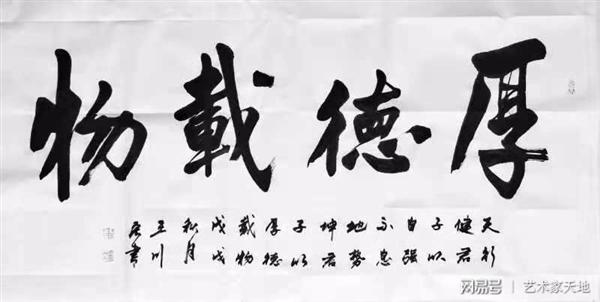 厚德載物
天行
健君
子以
自强
不息
地势
坤君
子以
厚德
載物
戊戌
秋月
王川
書
网易号 | 艺术家天地